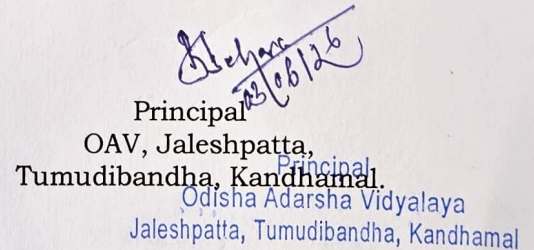 Behera
03/06/26
Principal
OAV, Jaleshpatta,
Tumudibandha, Kandhamal.
Principal
Odisha Adarsha Vidyalaya
Jaleshpatta, Tumudibandha, Kandhamal